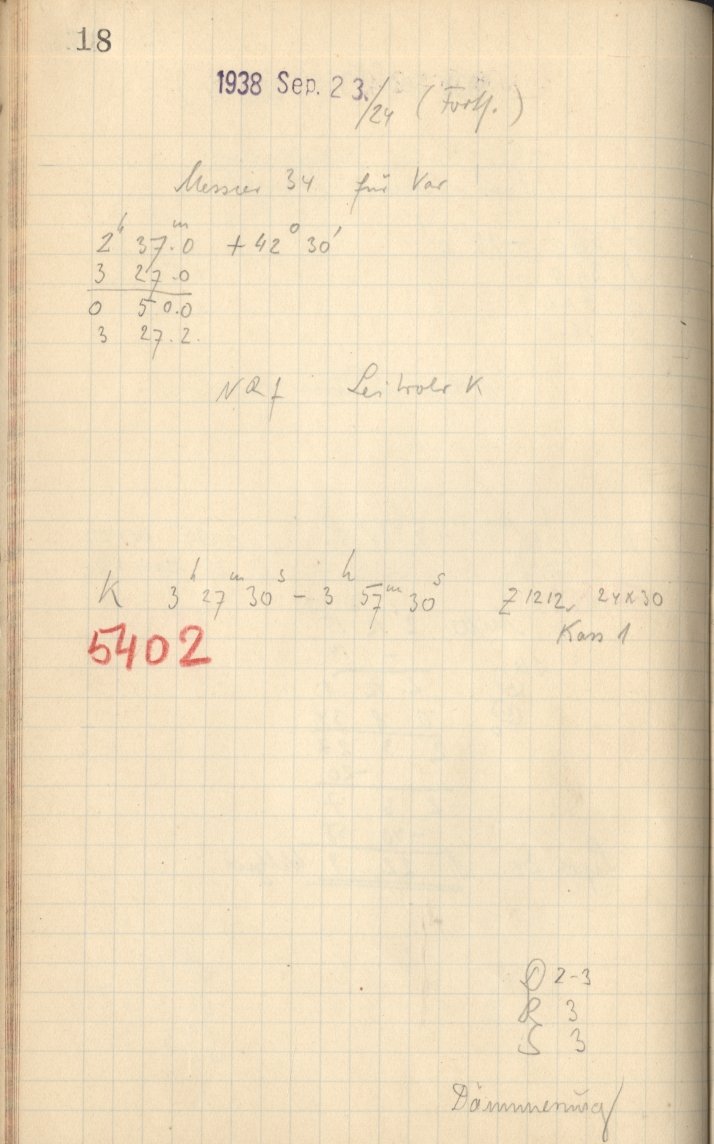 18
1938 Sep. 23./24 (Forts.)
Messier 34 für Var
2ʰ 37ᵐ.0 +42° 30'
3 27.0
0 50.0
3 27.2.
NQf Leitrohr K
K 3ʰ 27ᵐ 30ˢ – 3ʰ 57ᵐ 30ˢ Z 1212, 24x30
Kass 1
5402
D 2-3
R 3
S 3
Dämmerung